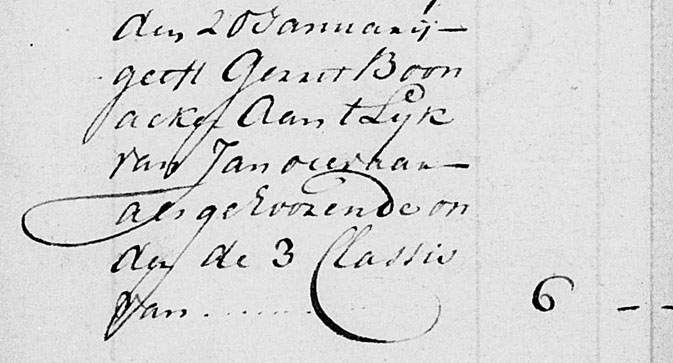 den 20 Januarij -
geeft Gerrit Boon
acker Aan t Lijk
van Jan
als gehoorende on
der de 3 Classis
van .......... 6 - -